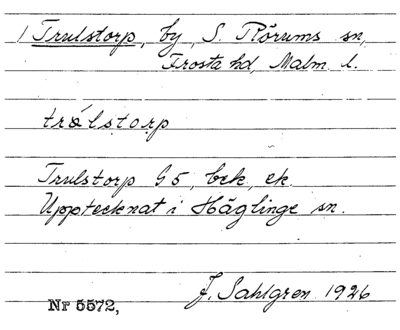 1 Trulstorp, by, S. Rörums sn,
Frosta hd, Malm. l.
trålstorp
Trulstorp G5, bek, ek.
Upptecknat i Häglinge sn.
J. Sahlgren 1926
Nr 5572,